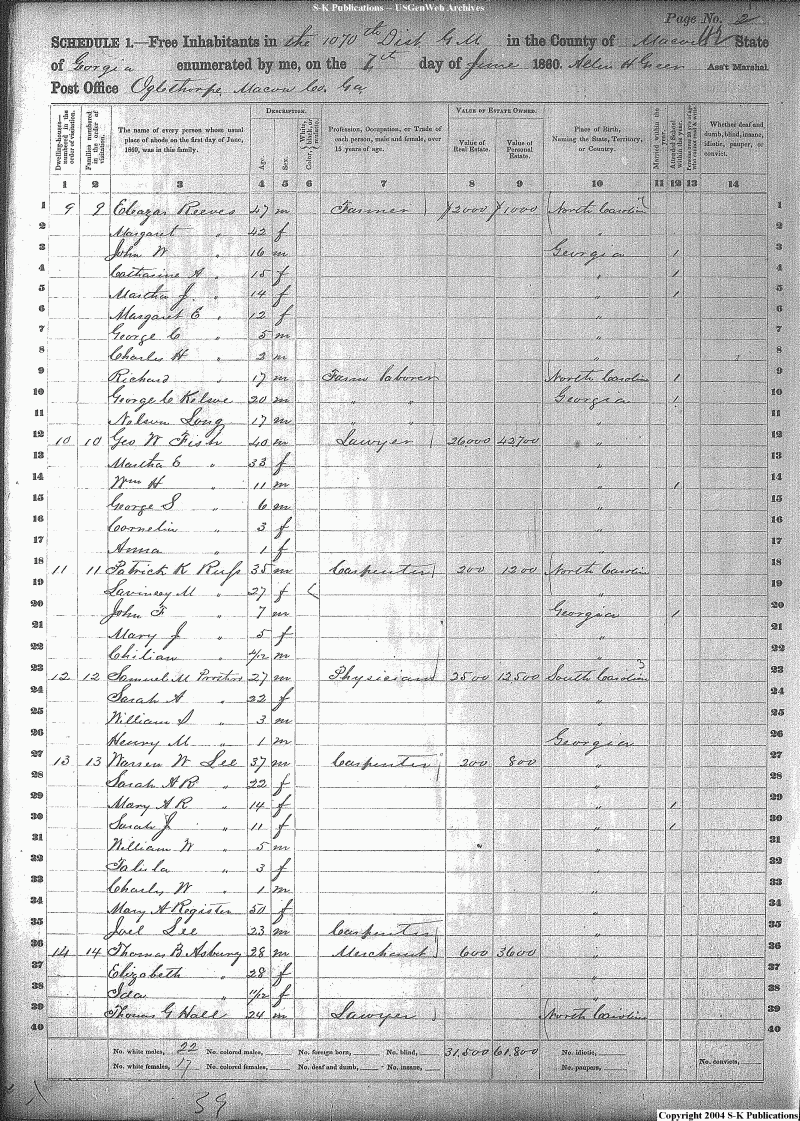 S-K Publications -- USGenWeb Archives
Page No. 2
SCHEDULE 1.—Free Inhabitants in the 1070th Dist G M in the County of Macon State
of Georgia enumerated by me, on the 7th day of June 1860. Allen H Greer Ass't Marshal.
Post Office Oglethorpe Macon Co. Ga
Dwelling-houses—numbered in the order of visitation.
Families numbered in the order of visitation.
The name of every person whose usual place of abode on the first day of June, 1860, was in this family.
DESCRIPTION.
Age.
Sex.
Color, White, black, or mulatto.
Profession, Occupation, or Trade of each person, male and female, over 15 years of age.
VALUE OF ESTATE OWNED.
Value of Real Estate.
Value of Personal Estate.
Place of Birth, Naming the State, Territory, or Country.
Married within the year.
Attended School within the year.
Whether deaf and dumb, blind, insane, idiotic, pauper, or convict.
1 2 3 4 5 6 7 8 9 10 11 12 13 14
1 9 9 Eleazar Reeves 47 m Farmer 2000 1000 North Carolina 1
2 Margaret " 42 f " 2
3 John W " 16 m Georgia 1 3
4 Catharine A " 15 f " 1 4
5 Martha J. " 14 f " 1 5
6 Margaret E " 12 f " 6
7 George C " 5 m " 7
8 Charles H " 3 m " 8
9 Richard " 17 m Farm laborer North Carolina 1 9
10 George C 20 m " " Georgia 1 10
11 Nelson Long 17 m " " " 11
12 10 10 Geo W Fish 40 m Lawyer 26000 42700 " 12
13 Martha E " 33 f " 13
14 Wm H " 11 m " 1 14
15 George S " 6 m " 15
16 Cornelia " 3 f " 16
17 Anna " 1 f " 17
18 11 11 Patrick K Russ 35 m Carpenter 200 1200 North Carolina 18
19 M " 27 f " 19
20 John F " 7 m Georgia 1 20
21 Mary J " 5 f " 21
22 4/12 m " 22
23 12 12 Samuel M 27 m Physician 2500 12500 South Carolina 23
24 Sarah A " 22 f " 24
25 William S " 3 m " 25
26 Henry M " 1 m Georgia 26
27 13 13 Warren W Lee 37 m Carpenter 200 800 " 27
28 Sarah A R " 22 f " 28
29 Mary A R " 14 f " 1 29
30 Sarah J. " 11 f " 1 30
31 William W " 5 m " 31
32 " 3 f " 32
33 Charles W " 1 m " 33
34 Mary A Register 50 f " 34
35 Joel Lee 23 m Carpenter " 35
36 14 14 Thomas B Asbury 28 m Merchant 600 3600 " 36
37 Elizabeth " 28 f " 37
38 Ida " f " 38
39 Thomas G Hall 24 m Lawyer North Carolina 39
40 40
No. white males, 22 No. colored males, No. foreign born, No. blind, 31,500 61,800 No. idiotic,
No. white females, 17 No. colored females, No. deaf and dumb, No. insane, No. paupers, No. convicts,
39
Copyright 2004 S-K Publications